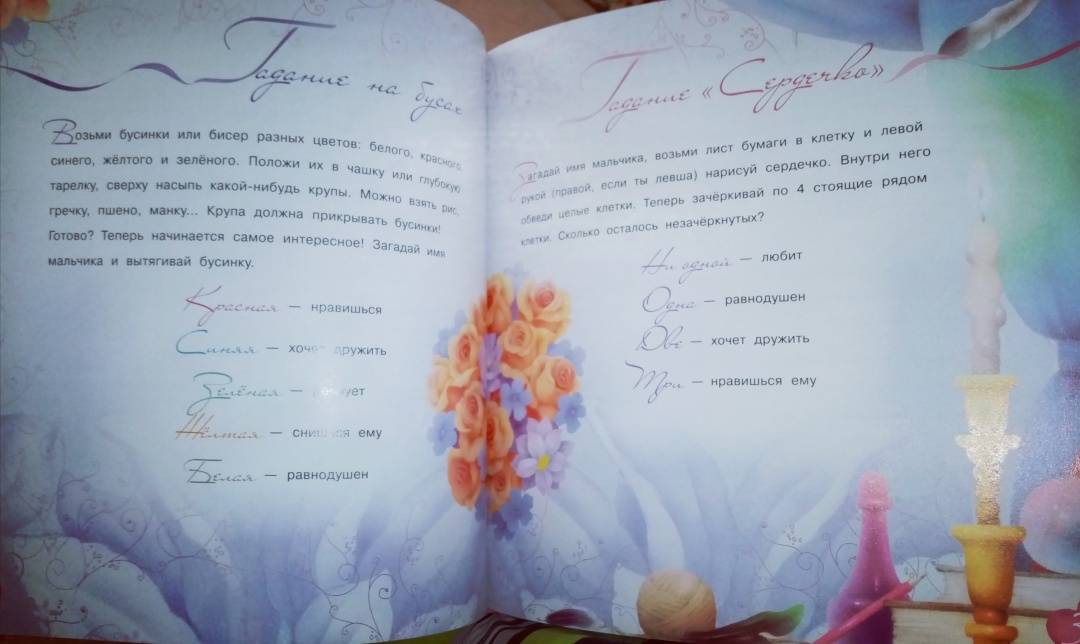 Гадание на бусах
Возьми бусинки или бисер разных цветов: белого, красного,
синего, жёлтого и зелёного. Положи их в чашку или глубокую
тарелку, сверху насыпь какой-нибудь крупы. Можно взять рис,
гречку, пшено, манку... Крупа должна прикрывать бусинки!
Готово? Теперь начинается самое интересное! Загадай имя
мальчика и вытягивай бусинку.
Красная — нравишься
Синяя — хочет дружить
Зелёная —
Жёлтая — снишься ему
Белая — равнодушен
Гадание «Сердечко»
Загадай имя мальчика, возьми лист бумаги в клетку и левой
рукой (правой, если ты левша) нарисуй сердечко. Внутри него
обведи целые клетки. Теперь зачёркивай по 4 стоящие рядом
клетки. Сколько осталось незачёркнутых?
Ни одной — любит
Одна — равнодушен
Две — хочет дружить
Три — нравишься ему